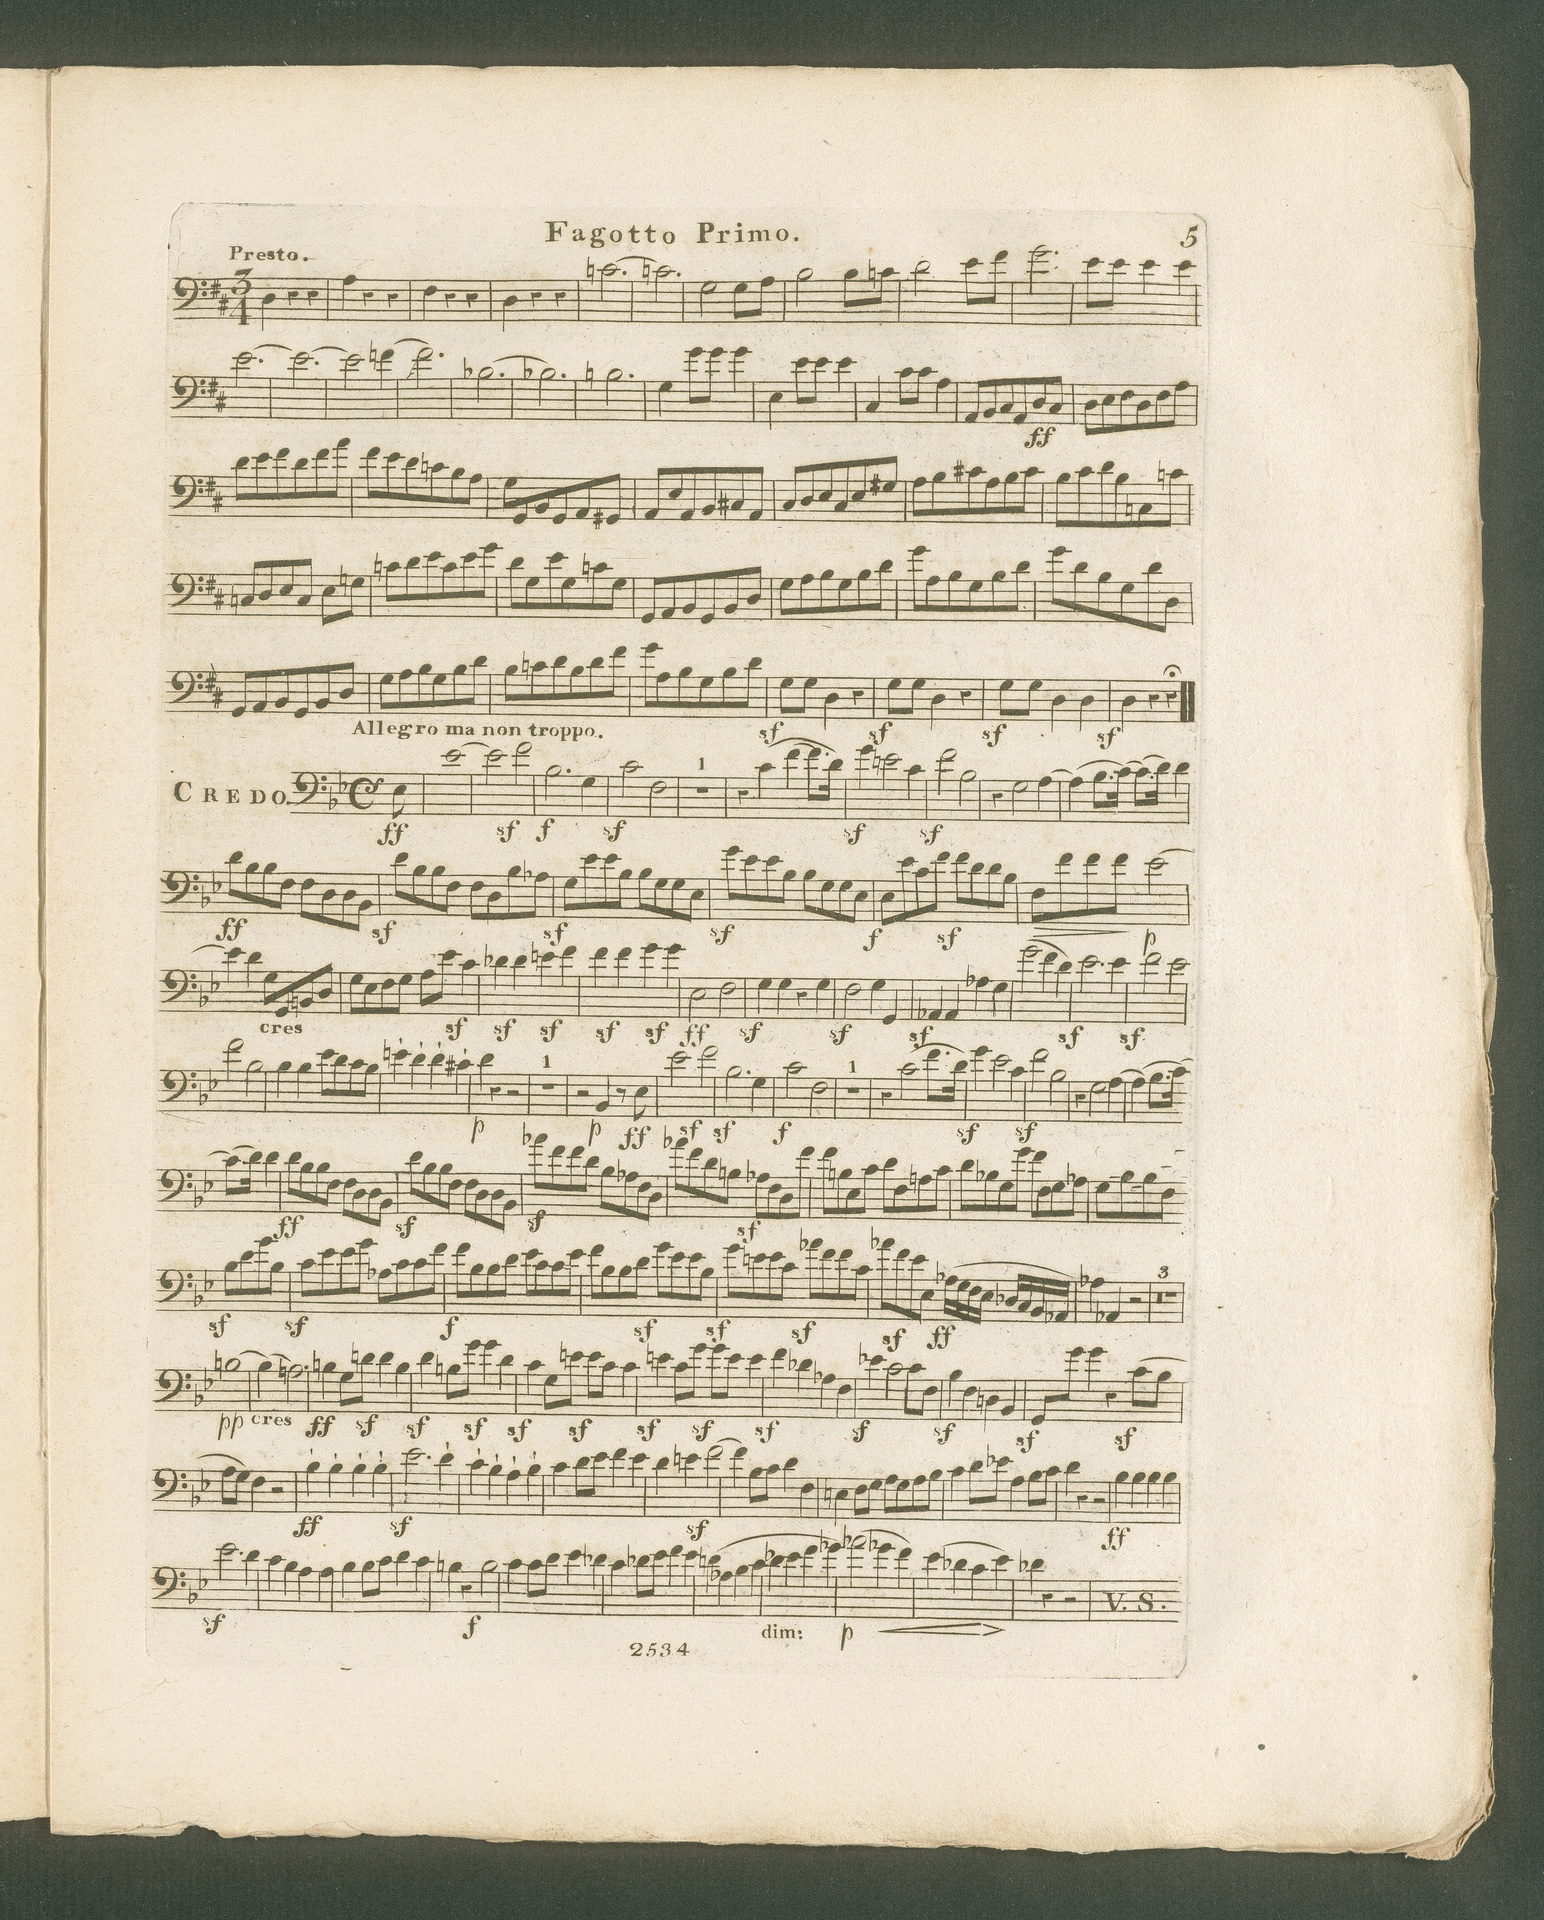 Fagotto Primo.
5
Presto.
3
4
ff
Allegro ma non troppo.
sf sf sf sf
CREDO.
1
ff sf f sf sf sf
ff sf sf sf f sf p
cres sf sf sf sf sf ff sf sf sf sf sf
1 1
p p ff sf sf f sf sf
ff sf sf sf
3
sf sf f sf sf sf sf ff
pp cres ff sf sf sf sf sf sf sf sf sf sf sf sf
ff sf sf ff
V. S.
sf f dim: p
2534